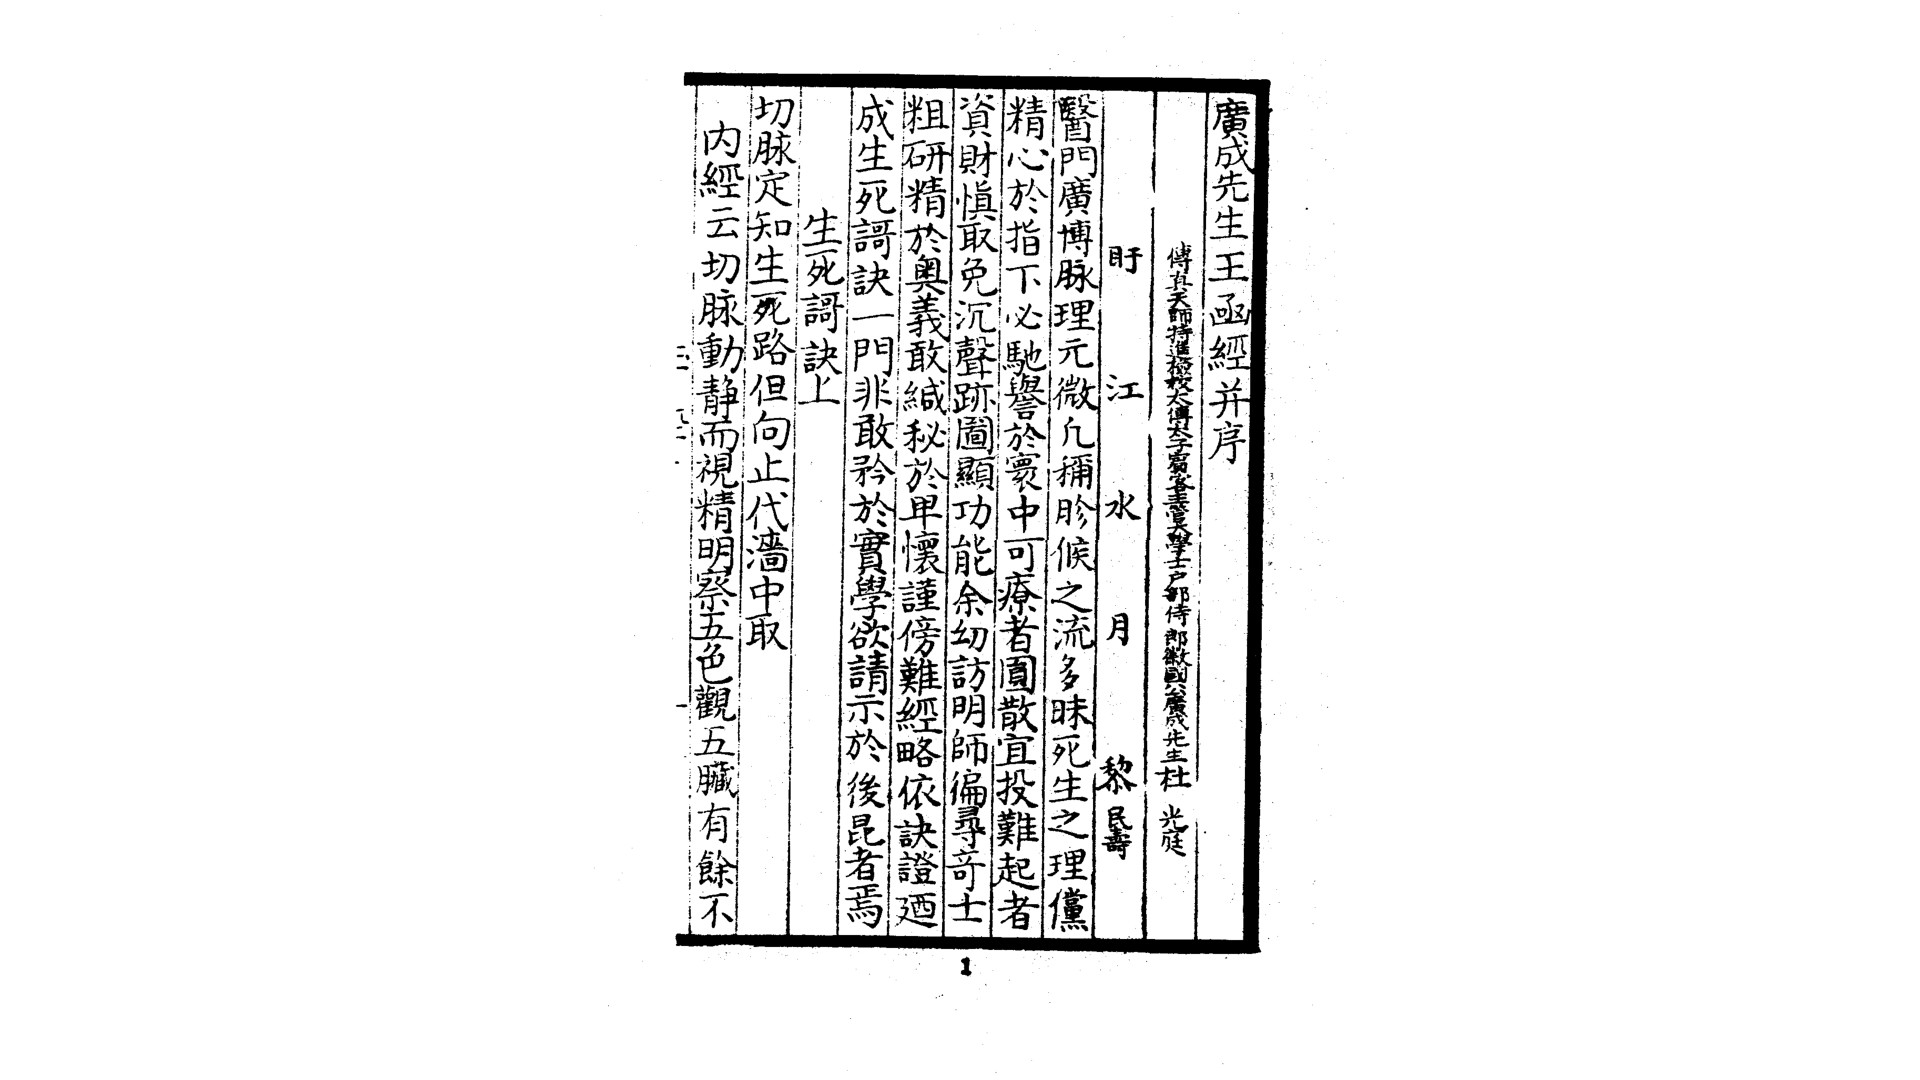 廣成先生王函經并序
傳真天師特進檢校太傅太子賓客壽昌大學士户部侍郎徽國公廣成先生杜光庭
盱江水月黎民壽
醫門廣博脉理元微凢稱胗候之流多昧死生之理儻
精心於指下必馳譽於寰中可療者圓散宜投難起者
資財慎取免沉聲跡圖顯功能余幼訪明師徧尋竒士
粗研精於奥義敢緘秘於卑懷謹傍難經略依訣證廼
成生死謌訣一門非敢矜於實學欲請示於後昆者焉
生死謌訣上
切脉定知生死路但向止代濇中取
内經云切脉動静而視精明察五色觀五臟有餘不
1